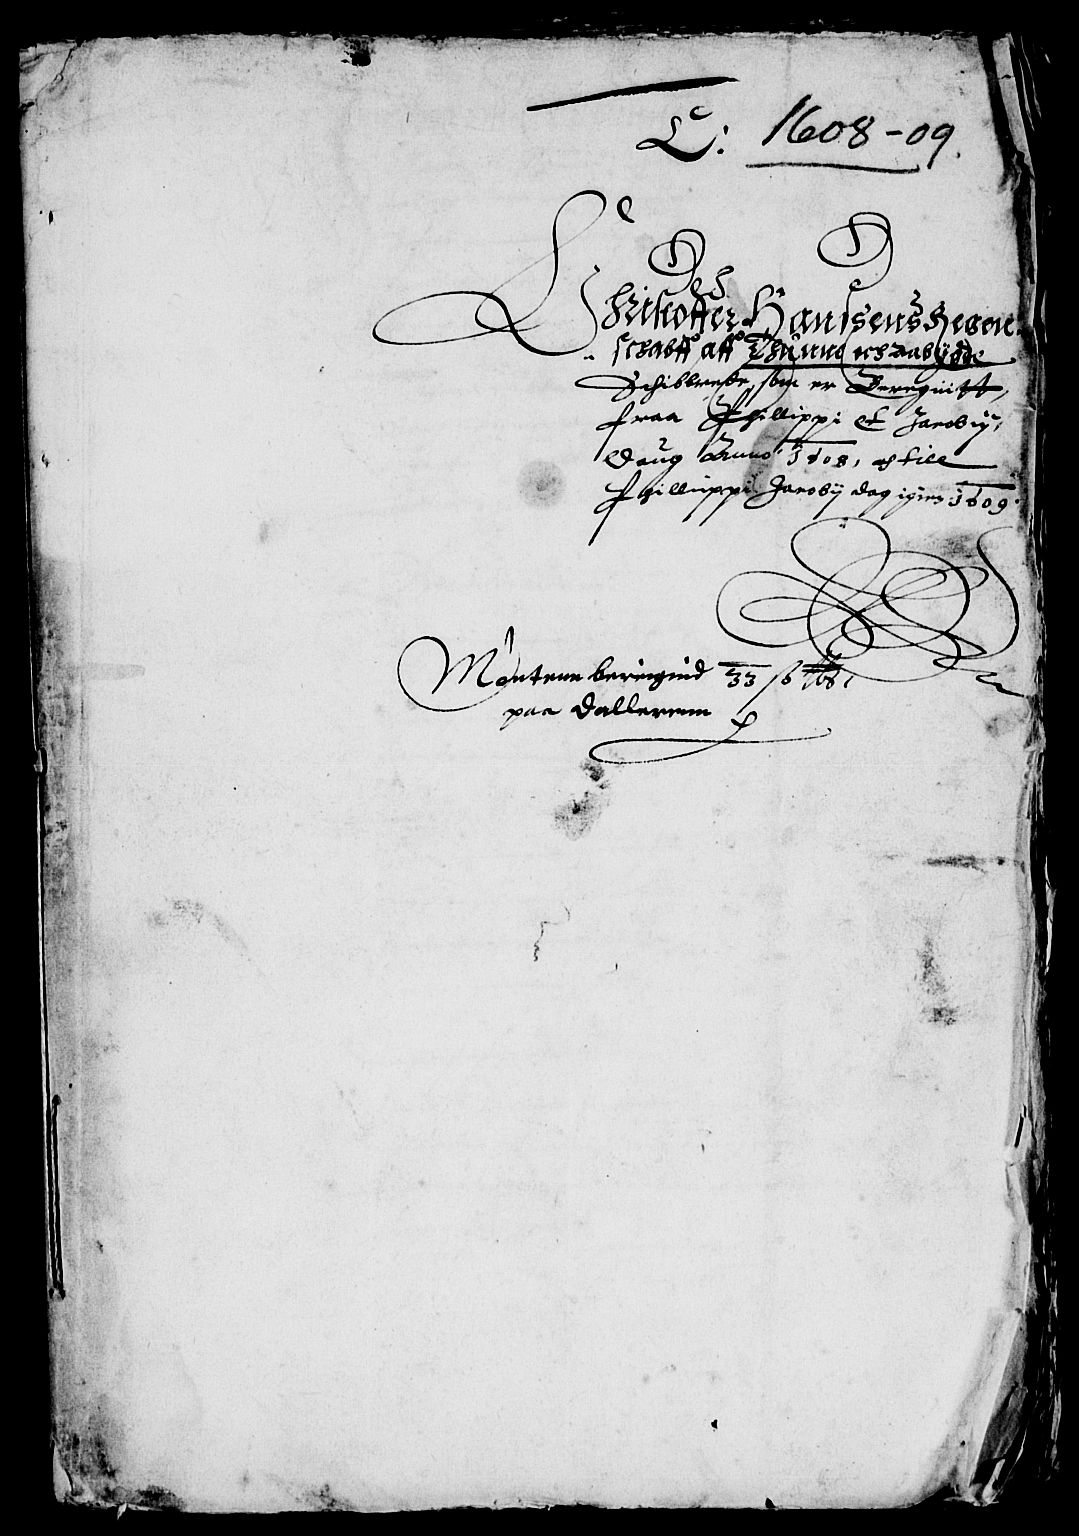 C: 1608-09.
Christoffer Hansens Regen-
schabff aff Thunno och Aabygde
Schibbrede, som er Beregnitt,
fraa Phillippi et Jacobij,
Daug Anno. 1608, och till
Phillippi Jacobij dag igien 1609.
Møntenn beregnid 33 ß
paa dallerenn